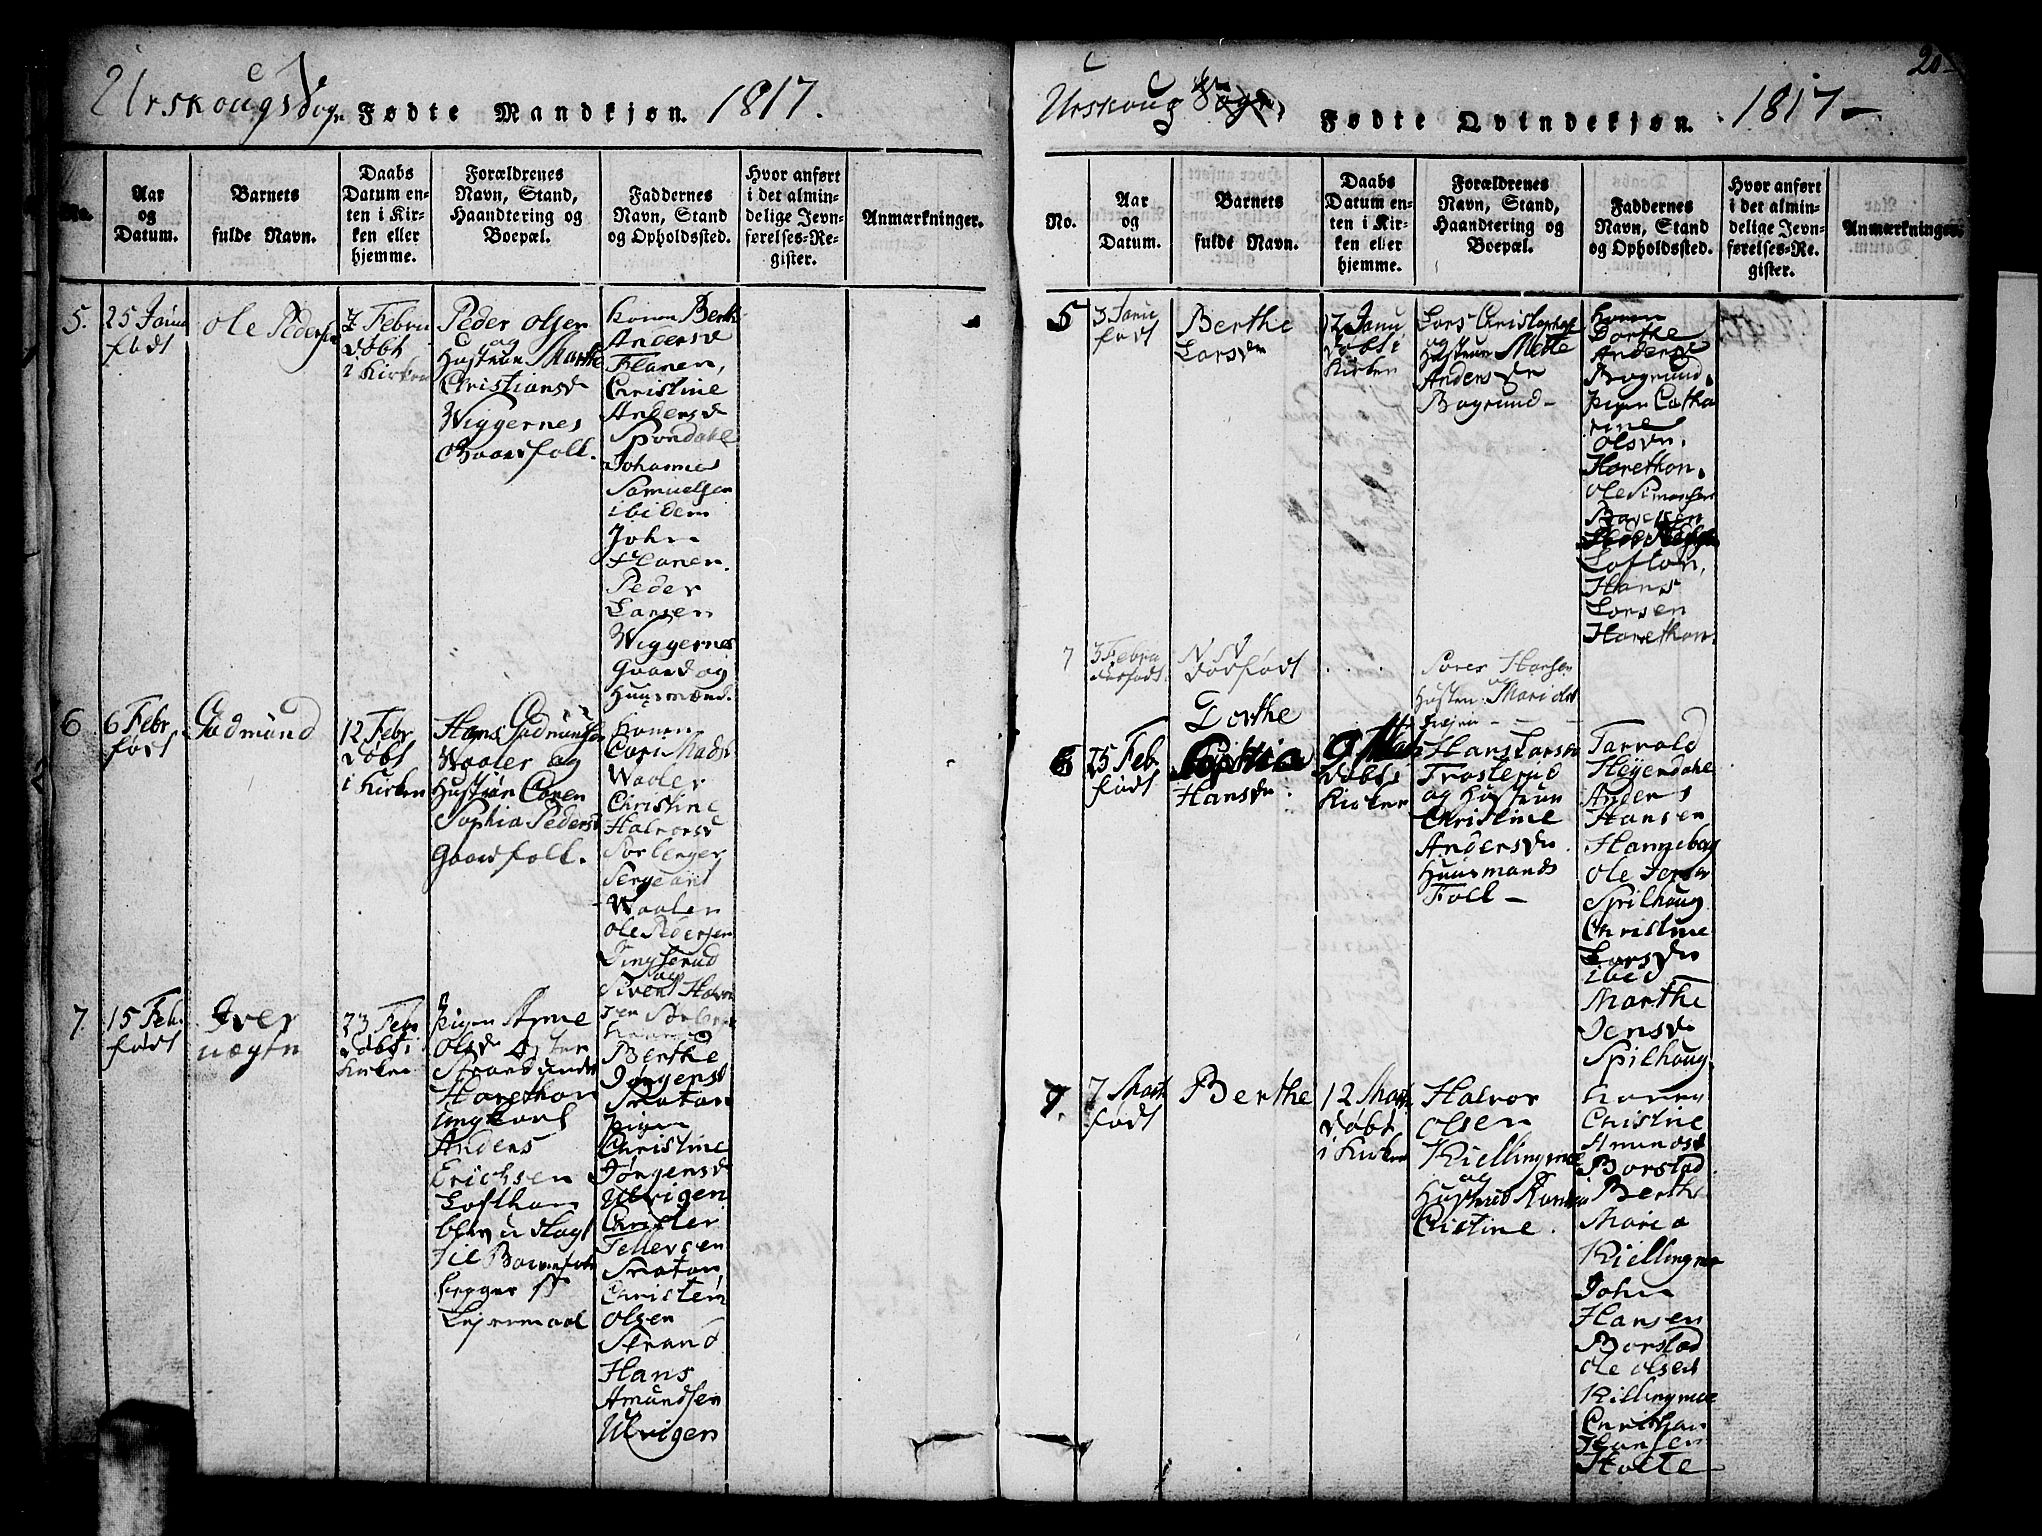 Urskougs Sogn Fødte Mandkjøn. 1817.
No.
Aar
og
Datum.
Barnets
fulde Navn.
Daabs
Datum en-
ten i Kir-
ken eller
hjemme.
Forældrenes
Navn, Stand,
Haandtering og
Boepæl.
Faddernes
Navn, Stand
og Opholdssted.
Hvor anført
i det almin-
delige Jevn-
førelses-Re-
gister.
Anmærkninger.
5.
25 Janu
født
Ole Peders
Febru
døbt
i Kirken
Peder Olsen
og
Hustrue Marthe
Christiansd
Wiggernes
Gaardfolk.
Konen Berthe
Andersd
Flanen,
Christine
Andersd
Spondahl
Johannes
Samuelsen
ibidem
John
Flanen.
Peder
Larsen
Wiggernes
Gaard og
Huusmænd.
6
6 Febr
født
Gudmund
12 Febr
døbt
i Kirken
Hans Gudmunsen
Waaler og
Hustrue Caren
Sophia Pedersd
Gaardfolk.
Konen
Caren Madsd
Waaler
Christine
Halvorsd
Sorberger
Sergeant
Waaler
Ole Pedersen
Tingsrud
og
Sivert Halvor
sen
7
15 Feb.
født
Iver
uægte
23 Feb
døbt i
Kirken
Pigen Anne
Olsd
Harethon
ungkarl
Anders
Erichsen
Lofthon
Konen
Berthe
Jørgensd
Præstøn
Pigen
Christine
Jørgensd
Ulvigen
Christer
Tellersen
Christen
Olsen
Strand
Hans
Amundsen
Ulvigen
20
Urskoug Sogn, Fødte Qvindekjøn. 1817 –
No.
Aar
og
Datum.
Barnets
fulde Navn.
Daabs
Datum en-
ten i Kir-
ken eller
hjemme.
Forældrenes
Navn, Stand,
Haandtering og
Boepæl.
Faddernes
Navn, Stand
og Opholdssted.
Hvor anført
i det almin-
delige Jevn-
førelses-Re-
gister.
Anmærkninger.
5
3 Janu
født
Berthe
Larsdr
12 Janu
døbt i
Kirken
Lars Christophs
og
Hustrue Mette
Andersdr
Bogrund –
Konen
Dorthe
Andersd
Bogrund,
Pigen Catha
rine
Olsdr.
Harethon,
Ole Simonsen
Lofton,
Hans
Larsen
Harethon.
7
3 Febru
dødfødt
N N
dødfødt
. . . .
Hansen
Hustru Mari
8
25 Feb.
født
Dorthe
Hansdr.
9 Mar
døbt i
Kirken
Hans Larsen
Trosterud
og Hustrue
Christine
Andersdr.
Huusmands
Folk –
Tarvald
Heyerdahl
Anders
Hansen
Ole Jensen
Spilhoug
Christine
Larsdr
ibid
Marthe
Jensdr
Spilhoug
9.
7 Mart
født
Berthe
12 Mart
døbt
i Kirken
Halvor
Olsen
Kiellingmoe
og
Hustrue
Cristine.
Konen
Christine
Amundsd
Borstad
Berthe
Maria
Kiellingmoe
John
Hansen
Borstad
Ole Olsen
Killingmoe
Christian
Hansen
Holte